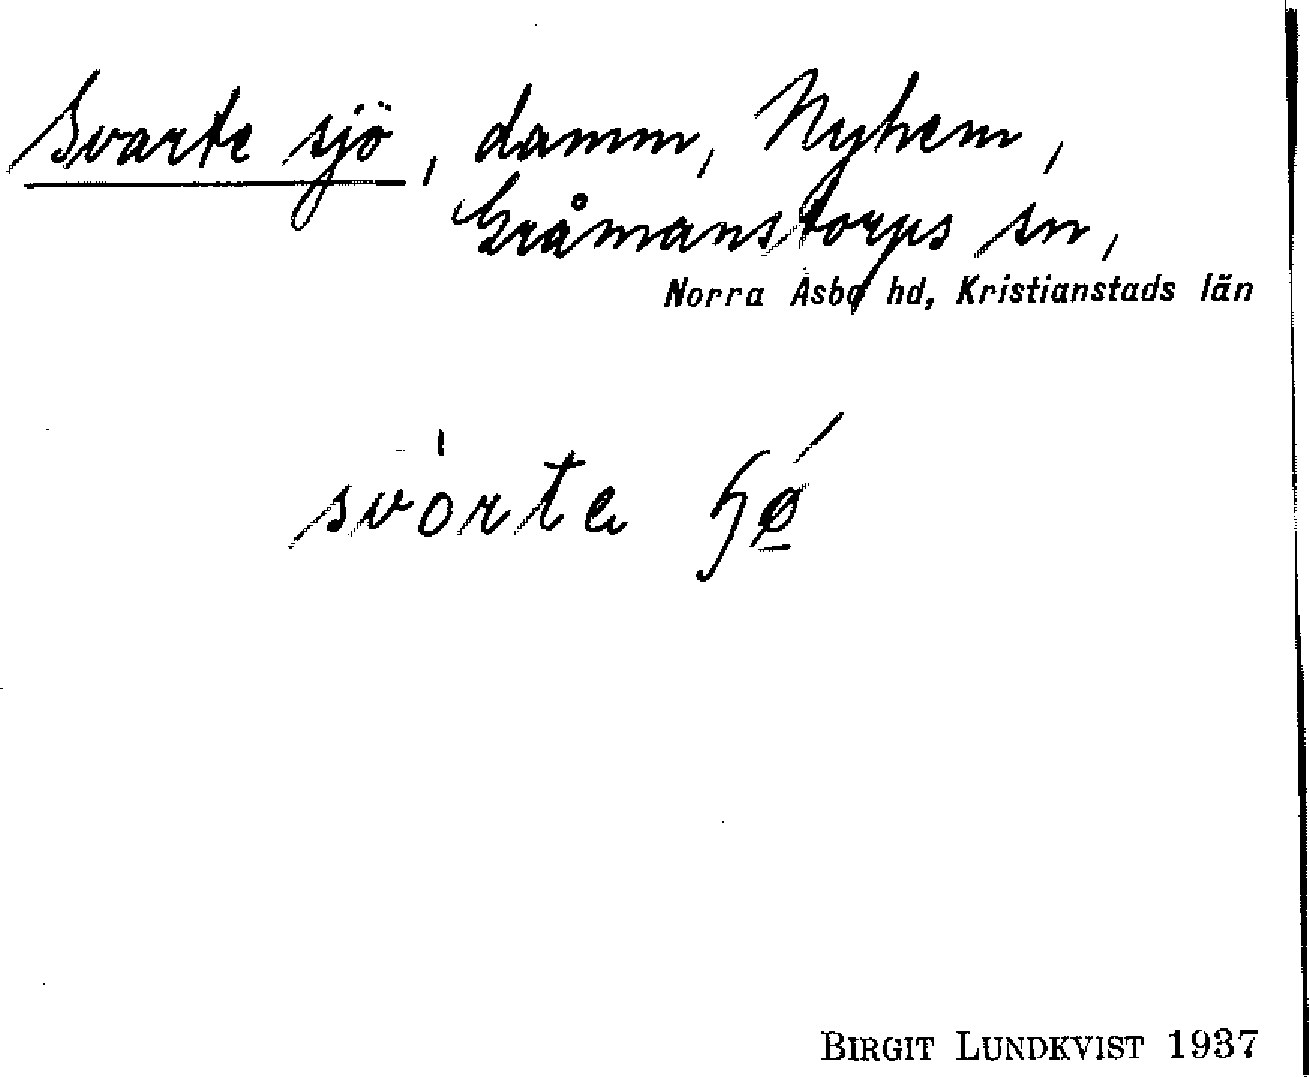 Svarte sjö, damm, Nyhem,
Gråmanstorps sn,
Norra Åsbo hd, Kristianstads län
svorte
BIRGIT LUNDKVIST 1937